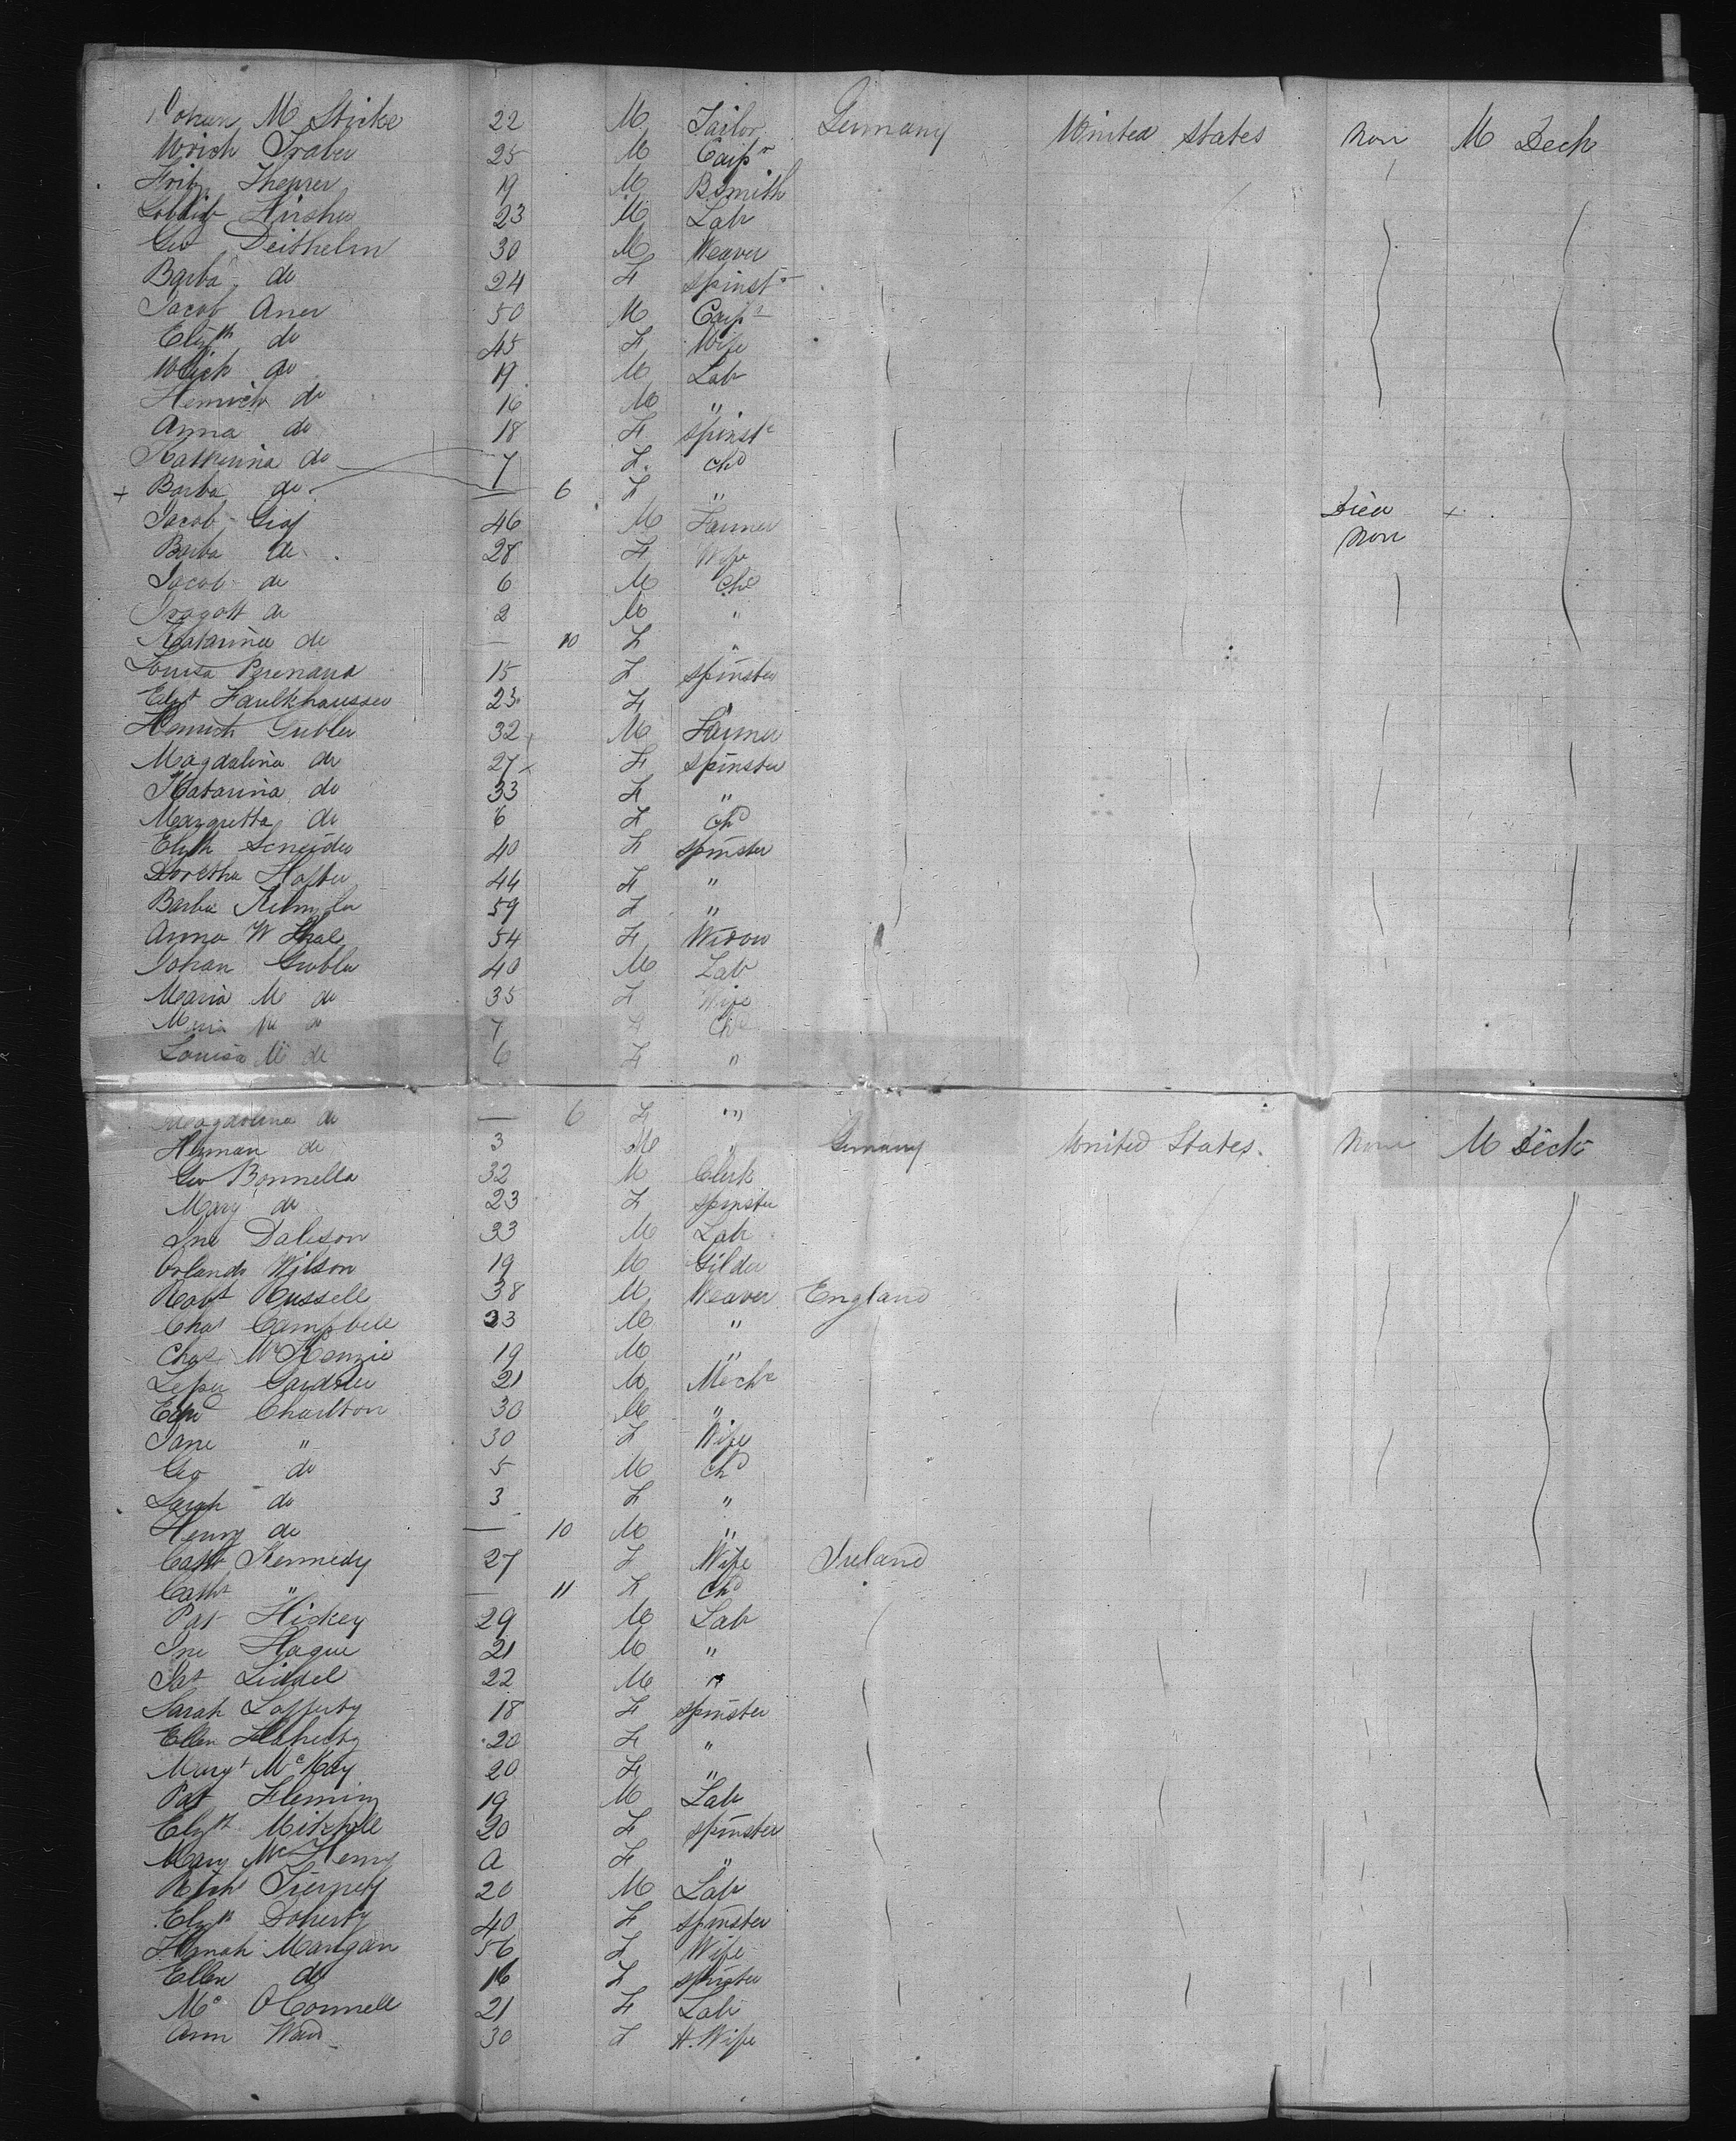 Johan M Stirke 22 M Tailor Germany United States Non M Deck
Ulrich Traber 25 M Carpr
Fritz Theurer 19 M B Smith
Gotlieb Hirsher 23 M Lab
Geo Deithelm 30 M Weaver
Barba do 24 F Spinstr
Jacob Aner 50 M Carpr
Elizth do 45 F Wife
Ulrich do 19 M Lab
Heinrich do 16 M "
Anna do 18 F Spinstr
Katherina do 7 F Chd
+ Barba do — 6 F " Died +
Jacob Graf 46 M Farmer Non
Barba do 28 F Wife
Jacob do 6 M Chd
Tragott do 2 M "
Katarina do — 10 F "
Louisa Brenand 15 F Spinster
Elizt Faulkhausser 23 F "
Heinrich Gubler 32 M Farmer
Magdalina do 27 F Spinster
Katarina do 33 F "
Margretta do 6 F Chd
Elizth Scneider 40 F Spinster
Doretha Hofter 44 F "
Barba 59 F "
Anna W Thal 54 F Widow
Johan Gubler 40 M Lab
Maria M do 35 F Wife
M do 7 F Chd
Louisa M do 6 F "
Magdalina do — 6 F "
Hyman do 3 M " Germany United States. None M Deck
Geo Bonnella 32 M Clerk
Mary do 23 F Spinster
Jno Daleson 33 M Lab
Orlando Wilson 19 M Gilder
Robt Russell 38 M Weaver England
Chas Campbell 23 M "
Chas McKenzie 19 M "
Gardner 21 M Mechc
Edwd Charlton 30 M "
Jane " 30 F Wife
Geo do 5 M Chd
Sarah do 3 F "
Henry do — 10 M "
Cath Kennedy 27 F Wife Ireland
Cath " — 11 F Chd
Pat Hickey 29 M Lab
Jno Hague 21 M "
Pat Liddel 22 M "
Sarah Lafferty 18 F Spinster
Ellen Flaherty 20 F "
Margt McKay 20 F "
Pat Fleming 19 M Lab
Elizth Mitchell 20 F Spinster
Mary McHenry a F "
Richd Tierney 20 M Lab
Elizth Doherty 40 F Spinster
Hanah Mangan 56 F Wife
Ellen do 16 F Spinster
Mc OConnell 21 F Lab
Ann Ward 30 F H. Wife